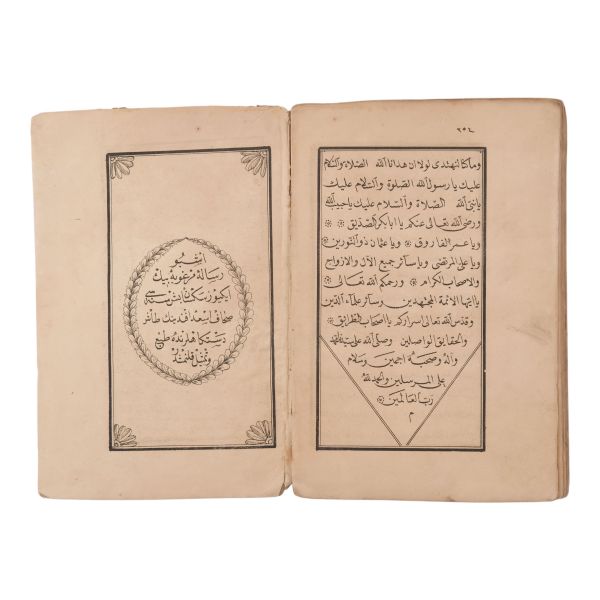 ٢٥٤
وما كنا لنهتدى لولا ان هدانا الله الصلاة والسلام
عليك يا رسول الله الصلوة والسلام عليك
يا نبى الله الصلاة والسلام عليك يا حبيب الله
ورضى الله تعالى عنكم يا ابا بكر الصديق
ويا عمر الفاروق ويا عثمان ذو النورين
ويا على المرتضى ويا سائر جميع الآل والازواج
والاصحاب الكرام ورحمكم الله تعالى
يا ايتها الائمة المجتهدين وسائر علماء الدين
وقدس الله تعالى اسراركم يا اصحاب الطرايق
والحقايق الواصلين وصلى الله على
وآله وصحبه اجمعين وسلام
على المرسلين والحمد لله
رب العالمين
م
اشبو
رسالۀ مرغوبه بيك
ايكيوز سكسان سنه سى
صحاف اسعد افندينك طاش
دستكاهلرنده طبع
وتمثيل قلندى